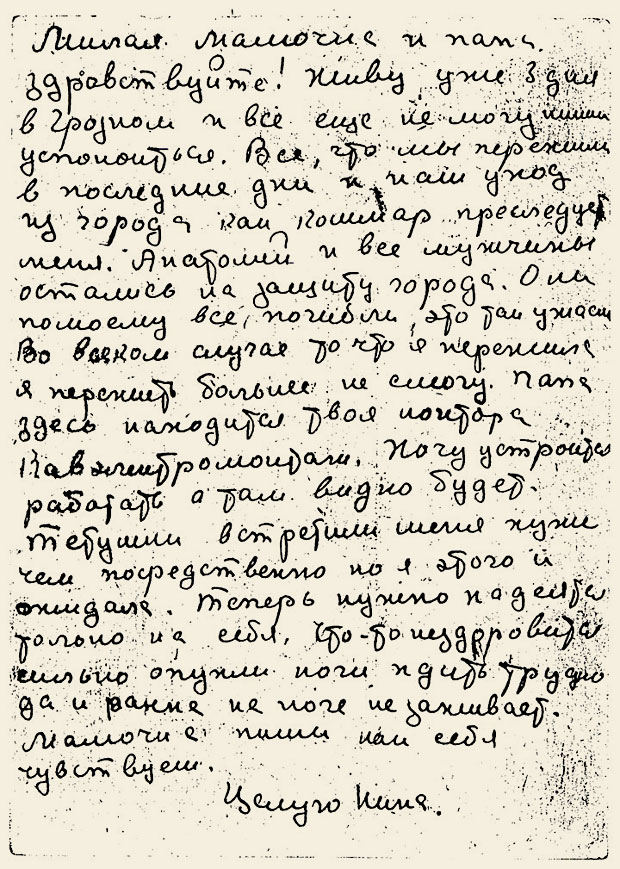 Милая мамочка и папа.
Здравствуйте! Живу уже 3 дня
в Грозном и все еще не могу
успокоиться. Все, что мы пережили
в последние дни и наш уход
из города как кошмар преследует
меня. Анатолий и все мужчины
остались на защиту города. Они
помоему все погибли, это так ужасн
Во всяком случае то что я пережила
я пережить больше не смогу. Папа
здесь находится твоя контора
Кавэлектромонтаж. Хочу устроится
работать а там видно будет.
Тетушки встретили меня хуже
чем посредственно но я этого и
ожидала. Теперь нужно надеятся
только на себя. Что-то нездоровится
сильно опухли ноги ходить трудно
да и ранка на ноге не заживает.
Мамочка пиши как себя
чувствуеш.
Целую Нина.